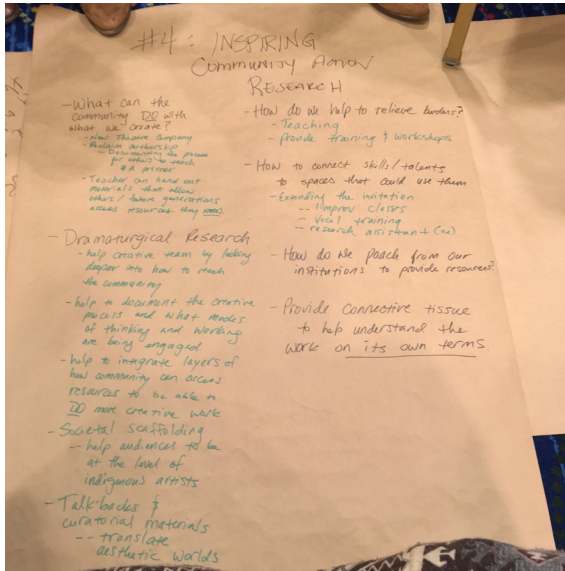 #4: INSPIRING
Community Action
RESEARCH
- What can the
community DO with
what we create?
- New Theatre Company
- Reclaim authorship
- Documenting the process
for others to teach
# A primer
- Teacher can hand out
materials that allow
others / future generations
access resources they need
- Dramaturgical Research
- help creative team by looking
deeper into how to reach
the community
- help to document the creative
process and what modes
of thinking and working
are being engaged
- help to integrate layers of
how community can access
resources to be able to
DO more creative work
- Societal scaffolding
-- help audiences to be
at the level of
indigenous artists
- Talk-backs &
curatorial materials
-- translate
aesthetic worlds
- How do we help to relieve burdens?
- Teaching
- Provide training & workshops
- How to connect skills/talents
to spaces that could use them
- Extending the invitation
-- improv classes
-- vocal training
-- research assistant
- How do we poach from our
institutions to provide resources?
- Provide connective tissue
to help understand the
work on its own terms